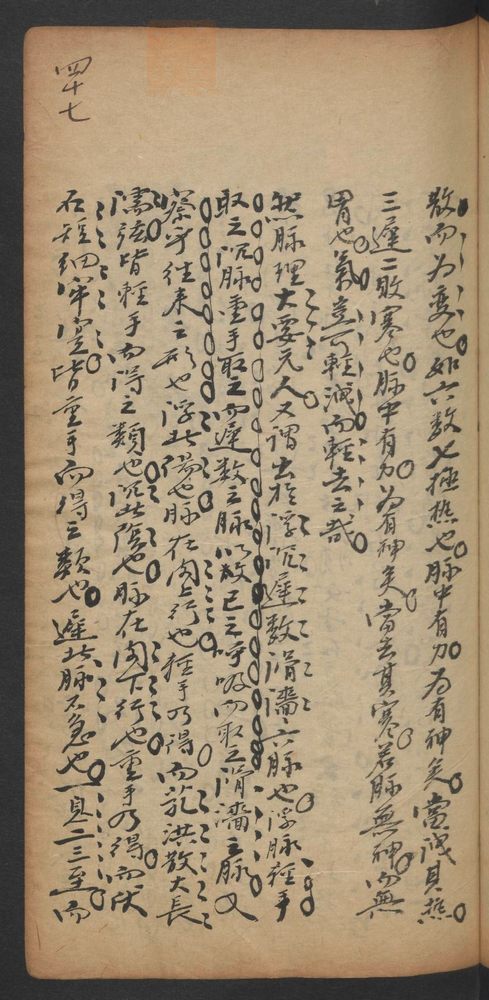 四十七
散而为变也如六数七極热也脉中有力为有神矣當洩其热
三遲二敗寒也脉中有力为有神矣當去其寒若脉無神而無
胃也氣豈可輕洩而輕去之哉
然脉理大要元人又謂出於浮沉遲數滑濇六脉也浮脉輕手
取之沉脉重手取之而遲数之脉以数己之呼吸而取之滑濇之脉又
察乎往来之形也浮此陽也脉在肉上行也輕手乃得而芤洪散大長
濡弦皆輕手而得之類也沉此陰也脉在肉下行也重手乃得而伏
石短细牢实皆重手而得之類也遲此脉不急也一息二三至而